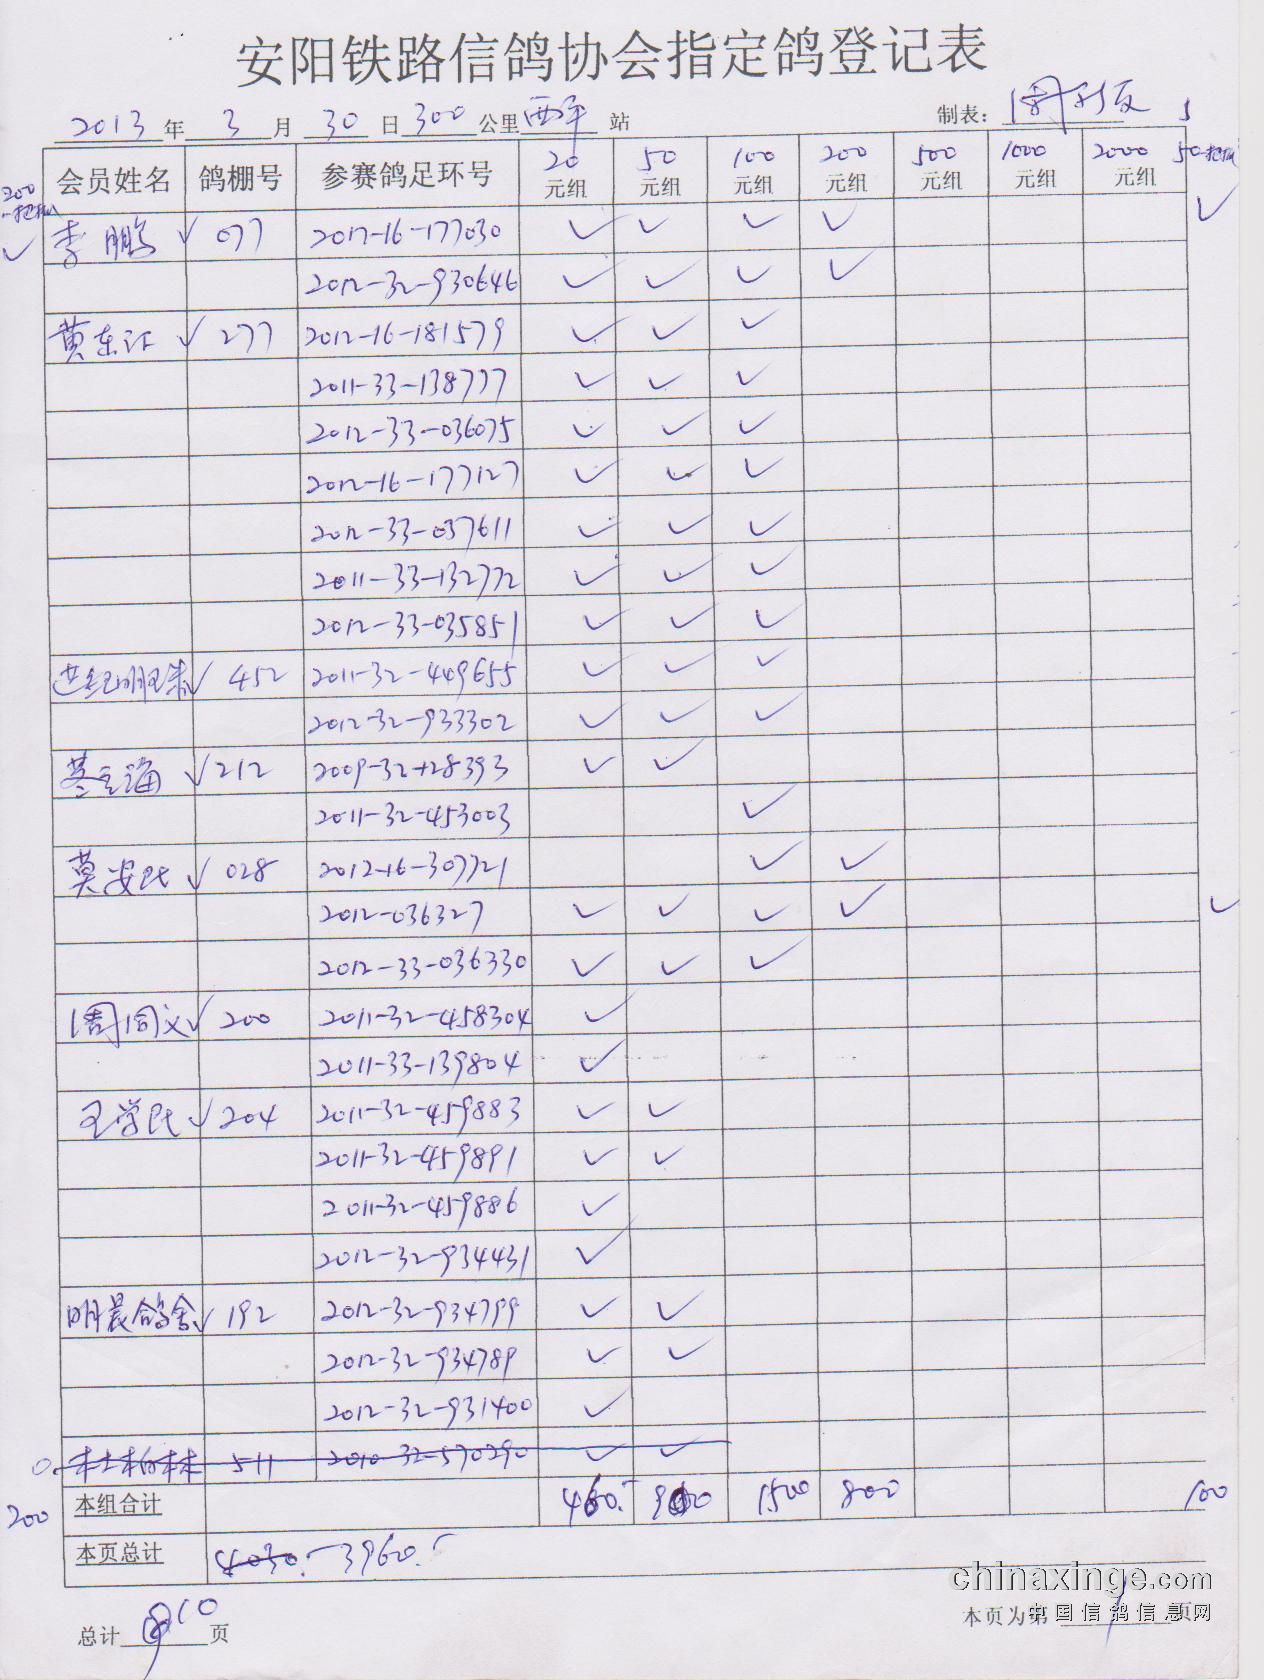 安阳铁路信鸽协会指定鸽登记表
2013年 3 月 30 日 300 公里 西平 站 制表:
会员姓名 鸽棚号 参赛鸽足环号 20元组 50元组 100元组 200元组 500元组 1000元组 2000元组 50一把抓
200一把抓
✓ 李鹏 ✓ 077 2012-16-177030 ✓ ✓ ✓ ✓ ✓
2012-32-930646 ✓ ✓ ✓ ✓
黄东江 ✓ 277 2012-16-181579 ✓ ✓ ✓
2011-33-138777 ✓ ✓ ✓
2012-33-036075 ✓ ✓ ✓
2012-16-177127 ✓ ✓ ✓
2012-33-037611 ✓ ✓ ✓
2011-33-132772 ✓ ✓ ✓
2012-33-035851 ✓ ✓ ✓
✓ 452 2011-32-449655 ✓ ✓ ✓
2012-32-933302 ✓ ✓ ✓
✓ 212 2009-32-128393 ✓ ✓
2011-32-453003 ✓
莫安民 ✓ 028 2012-16-307721 ✓ ✓
2012-036327 ✓ ✓ ✓ ✓ ✓
2012-33-036330 ✓ ✓ ✓
周同义 ✓ 200 2011-32-458304 ✓
2011-33-139804 ✓
王学民 ✓ 204 2011-32-459883 ✓ ✓
2011-32-459891 ✓ ✓
2011-32-459886 ✓
2012-32-934431 ✓
明晨鸽舍 ✓ 192 2012-32-934799 ✓ ✓
2012-32-934789 ✓ ✓
2012-32-931400 ✓
511 2010-32-570290 ✓ ✓
200 本组合计 460. 900 1500 800 100
本页总计 4030. 3960.
总计 10 页 本页为第 1 页
chinaxinge.com
中国信鸽信息网